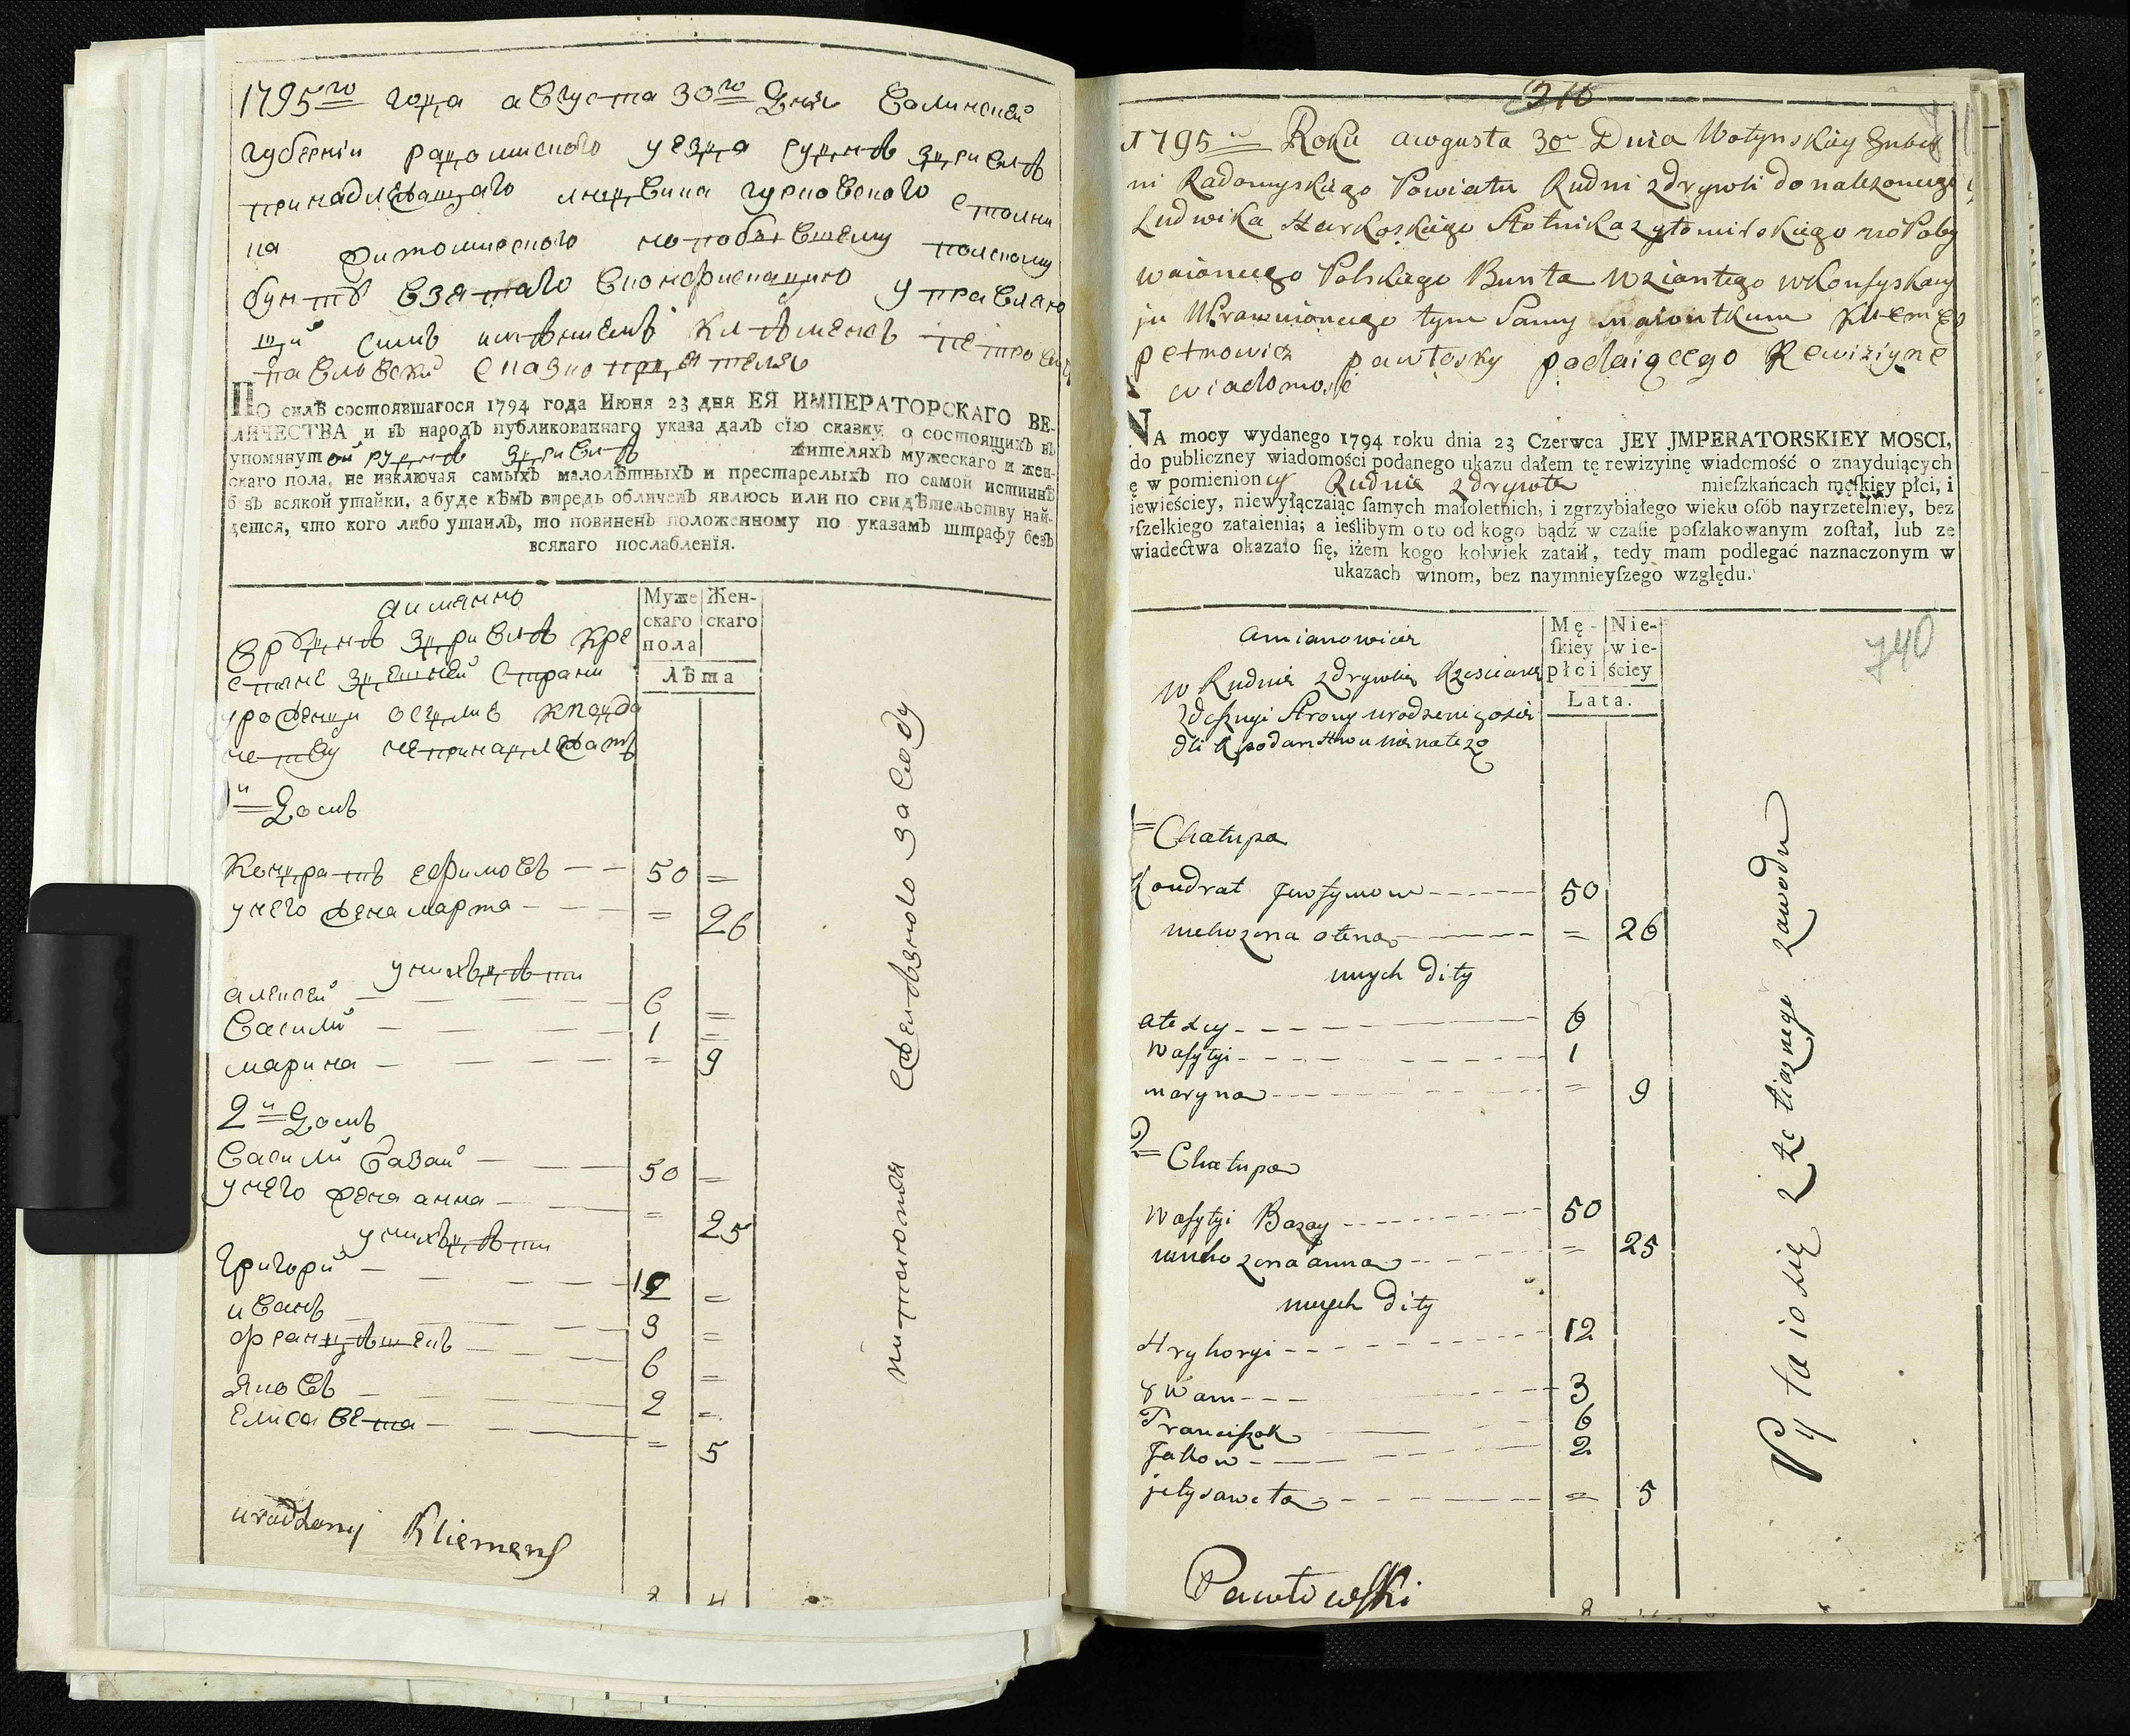 1795го года августа 30го дня волинской
губернiи радомиского уезда руднѣ здривлѣ
принадлежащаго людвика гурковского столни
ка житомирского по побывшему полскому
бунтѣ взятаго вконфискацию управляю
щй симъ имѣниемъ клѣменсъ петрович
павловский
ПО силѣ состоявшагося 1794 года Июня 23 дня ЕЯ ИМПЕРАТОРСКАГО ВЕ-
ЛИЧЕСТВА и въ народъ публикованнаго указа далъ сїю сказку о состоящихъ въ
упомянутой руднѣ здривлѣ жителяхъ мужескаго и жен-
скаго пола, не изключая самыхъ малолѣтныхъ и престарелыхъ по самой истиннѣ
безъ всякой утайки, а буде кѣмъ впредь обличенъ явлюсь или по свидѣтельству най-
дется, что кого либо утаилъ, то повиненъ положенному по указамъ штрафу безъ
всякаго послабленїя.
аимянно
Муже- Жен-
скаго скаго
пола
Лѣта
врѹднѣ здривлѣ кре
стяне здешней страни
урожденци оседлие кподда
нству непринадлежатъ
1й домъ
Кондратъ ефимовъ 50 =
унего жена марта = 26
унихъ дѣти
алексей 6 =
василий 1 =
марина = 9
2й домъ
василий базай 50 =
унего жена анна = 25
унихъ дѣти
григорий 12 =
иванъ 3 =
францѣшекъ 6 =
яковъ 2 =
елисавета = 5
urodzony Kliemens
питаются сжелѣзного заводу
316
1795 Roku awgusta 30 Dnia Wołynskiy Guber
ni Radomyskiego Powiatu Rudni zdrywli donalezoncego
Ludwika Hurkoskiego Stolnika zytomirskiego nopoby
waioncego Polskiego Bunta Wziantego wkonfyskacy
ju Uprawuioncego tym Samy maiontkum Klemes
petrowicz pawłosky podaiącego Rewiziyne
wiadomosć
NA mocy wydanego 1794 roku dnia 23 Czerwca JEY JMPERATORSKIEY MOSCI,
do publiczney wiadomości podanego ukazu dałem tę rewizyinę wiadomość o znayduiących
ę w pomienioncy Rudnie zdrywle mieſzkańcach męſkiey płci, i
iewieściey, niewyłączaiąc ſamych małoletnich, i zgrzybiałego wieku oſób nayrzetelniey, bez
ſzelkiego zataienia; a ieślibym o to od kogo bądź w czaſie poſzlakowanym został, lub ze
wiadectwa okazało ſię, iżem kogo kolwiek zataił, tedy mam podlegać naznaczonym w
ukazach winom, bez naymnieyſzego względu.
amianowicie
Mę- Nie-
ſkiey wie-
płci ściey
Lata.
740
w Rudnie zdrywlie kresciane
zdesznyi strony urodzeni gosie
dli k podanstwu nienależo
1 Chałupa
Kondrat Jwfymow 50
nieho zona ołena = 26
unych dity
ałexiy 6
wasylyi 1
maryna = 9
2 Chałupa
wasylyi Bazay 50
unieho zona anna = 25
unych dity
Hryhoryi 12
Jwam 3
Franciszek 6
Jakow 2
jełysaweta = 5
Pawłowski
Pytaio się z żeliaznego zawodu